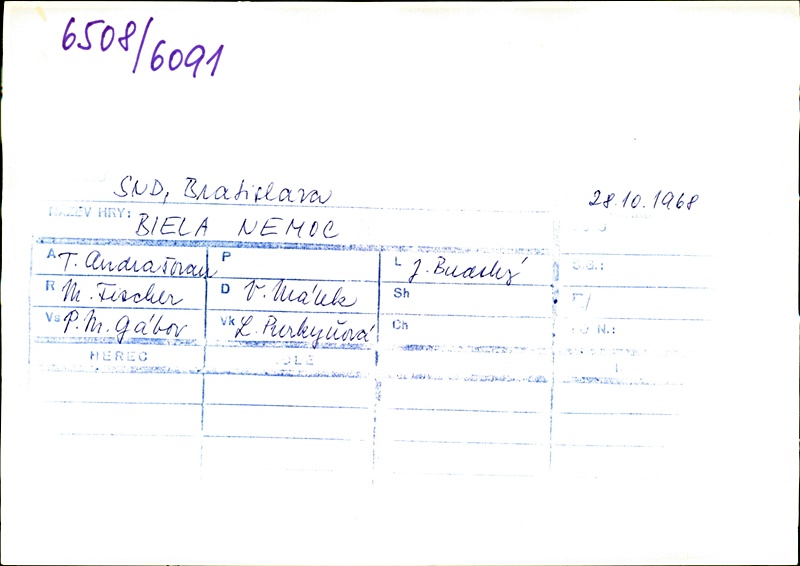 6508/6091
SND, Bratislava 28.10.1968
NÁZEV HRY: BIELA NEMOC
A T. Andrašovan P L J. Budský S.B.:
R M. Fischer D V. Málek Sh
Vs P. M. Gábor Vk L. Purkyňová Ch N.:
HEREC